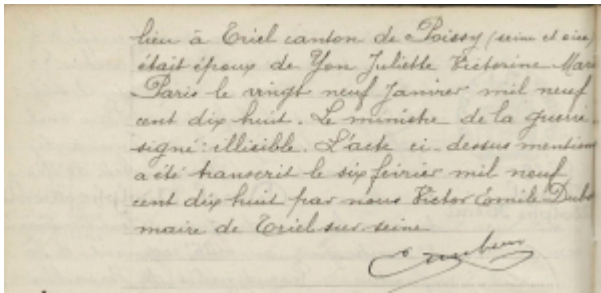 lieu à Triel canton de Poissy (seine et oise)
était époux de Yon Juliette Victorine Mar
Paris le vingt neuf Janvier mil neuf
cent dix huit. Le ministre de la guerre.
signé: illisible. L'acte ci-dessus mentionn
a été transcrit le six février mil neuf
cent dix huit par nous Victor Emile Dub
maire de Triel sur seine